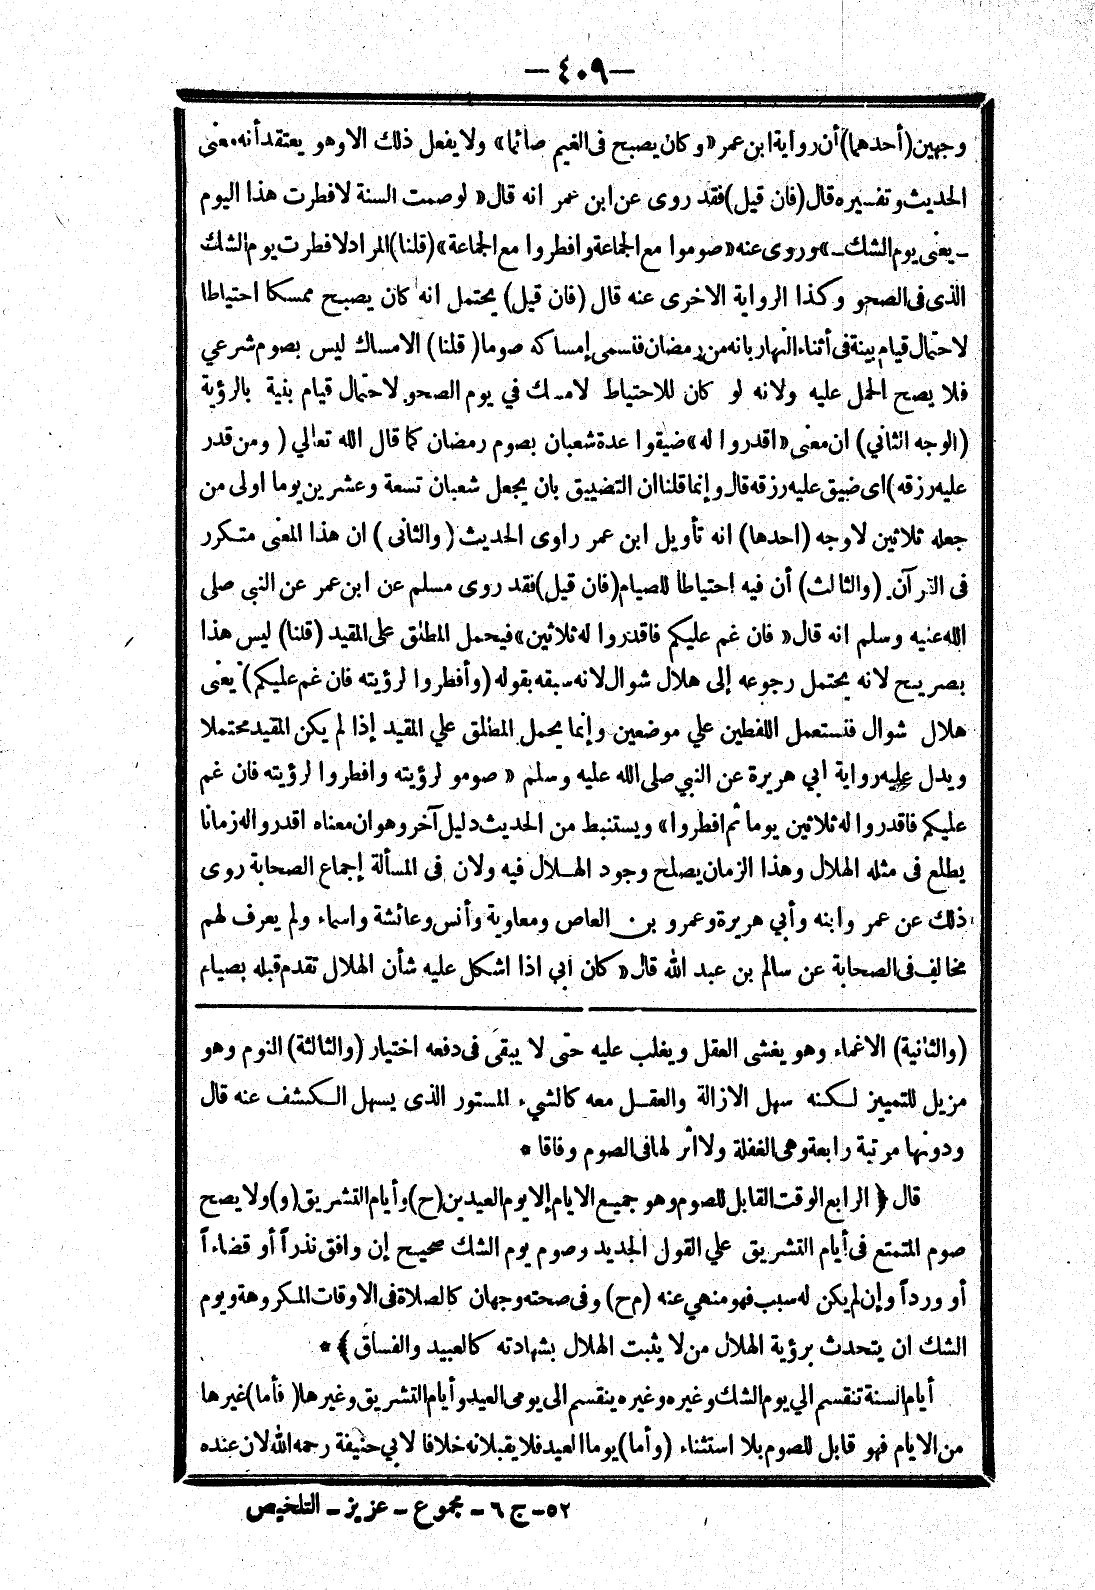 — ٤٠٩ —
وجهين (أحدهما) أن رواية ابن عمر «وكان يصبح فى الغيم صائما» ولا يفعل ذلك الا وهو يعتقد أنه معنى
الحديث وتفسيره قال (فان قيل) فقد روى عن ابن عمر انه قال «لو صمت السنة لافطرت هذا اليوم
ـ يعنى يوم الشك ـ» وروى عنه «صوموا مع الجماعة وافطروا مع الجماعة» (قلنا) المراد لافطرت يوم الشك
الذى فى الصحو وكذا الرواية الاخرى عنه قال (فان قيل) يحتمل انه كان يصبح ممسكا احتياطا
لاحتمال قيام بينة فى أثناء النهار بانه من رمضان فنسمى إمساكه صوما (قلنا) الامساك ليس بصوم شرعي
فلا يصح الحمل عليه ولانه لو كان للاحتياط لامسك في يوم الصحو لاحتمال قيام بنية بالرؤية
(الوجه الثاني) ان معنى «اقدروا له» ضيقوا عدة شعبان بصوم رمضان كما قال الله تعالي (ومن قدر
عليه رزقه) اى ضيق عليه رزقه قال وإنما قلنا ان التضييق بان يجعل شعبان تسعة وعشرين يوما اولى من
جعله ثلاثين لاوجه (احدها) انه تأويل ابن عمر راوى الحديث (والثانى) ان هذا المعنى متكرر
فى القرآن. (والثالث) أن فيه احتياطا للصيام (فان قيل) فقد روى مسلم عن ابن عمر عن النبي صلى
الله عنيه وسلم انه قال «فان غم عليكم فاقدروا له ثلاثين» فيحمل المطلق على المقيد (قلنا) ليس هذا
بصريح لانه يحتمل رجوعه إلى هلال شوال لانه سبقه بقوله (وأفطروا لرؤيته فان غم عليكم) يعنى
هلال شوال فنستعمل اللفظين علي موضعين وإنما يحمل المطلق علي المقيد إذا لم يكن المقيد محتملا
ويدل عليه رواية ابي هريرة عن النبي صلى الله عليه وسلم «صومو لرؤيته وافطروا لرؤيته فان غم
عليكم فاقدروا له ثلاثين يوما ثم افطروا» ويستنبط من الحديث دليل آخر وهو ان معناه اقدروا له زمانا
يطلع فى مثله الهلال وهذا الزمان يصلح وجود الهلال فيه ولان فى المسألة إجماع الصحابة روى
ذلك عن عمر وابنه وأبي هريرة وعمرو بن العاص ومعاوية وأنس وعائشة واسماء ولم يعرف لهم
مخالف فى الصحابة عن سالم بن عبد الله قال «كان أبي اذا اشكل عليه شأن الهلال تقدم قبله بصيام
(والثانية) الاغماء وهو يغشى العقل ويغلب عليه حتى لا يبقى فى دفعه اختيار (والثالثة) النوم وهو
مزيل للتمييز لكنه سهل الازالة والعقل معه كالشيء المستور الذى يسهل الكشف عنه قال
ودونها مرتبة رابعة وهى الغفلة ولا أثر لها فى الصوم وفاقا *
قال ﴿ الرابع الوقت القابل للصوم وهو جميع الايام إلا يوم العيدين (ح) وأيام التشريق (و) ولا يصح
صوم المتمتع فى أيام التشريق علي القول الجديد وصوم يوم الشك صحيح إن وافق نذراً أو قضاءاً
أو ورداً وإن لم يكن له سبب فهو منهي عنه (م ح) وفى صحته وجهان كالصلاة فى الاوقات المكروهة ويوم
الشك ان يتحدث برؤية الهلال من لا يثبت الهلال بشهادته كالعبيد والفساق ﴾ *
أيام السنة تنقسم الي يوم الشك وغيره وغيره ينقسم الى يومى العيد وأيام التشريق وغيرها (فأما) غيرها
من الايام فهو قابل للصوم بلا استثناء (وأما) يوما العيد فلا يقبلانه خلافا لابي حنيفة رحمه الله لان عنده
٥٢ـ ج ٦ ـ مجموع ـ عزيز ـ التلخيص